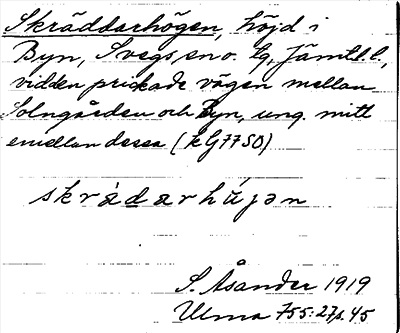 Skräddarhögen, höjd i
Byn, Svegs sn o. tg, Jämtl. l.,
vidden prickade vägen mellan
Solngården och Byn, ung. mitt
emellan dessa (kG7750)
skràdarhújən
S. Åsander 1919
Ulma 755:27, s. 45